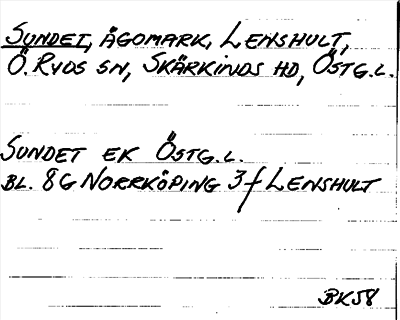 SUNDET, ÄGOMARK, LENSHULT,
Ö. RYDS SN, SKÄRKINDS HD, ÖSTG.L.
SUNDET EK ÖSTG.L.
BL. 8G NORRKÖPING 3f LENSHULT
BK58